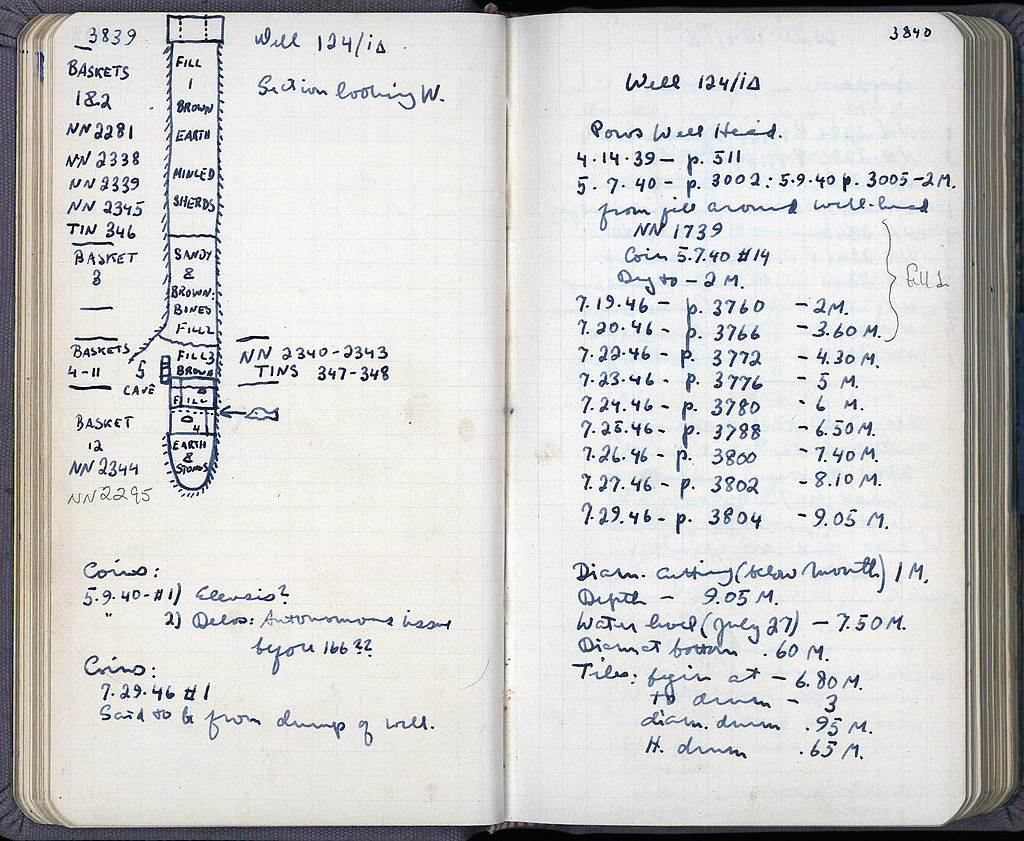 3839
Well 124/iΔ
Section looking W.
BASKETS
1&2
NN 2281
NN 2338
NN 2339
NN 2345
TIN 346
BASKET
3
BASKETS
4-11
CAVE
BASKET
12
NN 2344
NN 2295
FILL
1
BROWN
EARTH
MINGLED
SHERDS
SANDY
&
BROWN:
BONES
FILL 2
FILL 3
BROWN
5
FILL
4
EARTH
&
STONES
NN 2340-2343
TINS 347-348
Coins:
5.9.40-#1) Eleusis?
" 2) Delos: Autonomous issue
before 166??
Coins:
7.29.46 #1
Said to be from dump of well.
3840
Well 124/iΔ
Poros Well Head.
4.14.39 - p. 511
5.7.40 - p. 3002: 5.9.40 p. 3005-2M.
from fill around well-head
NN 1739
Coin 5.7.40 #14
Dug to - 2 M.
Fill 1
7.19.46 - p. 3760 - 2M.
7.20.46 - p. 3766 - 3.60 M.
7.22.46 - p. 3772 - 4.30 M.
7.23.46 - p. 3776 - 5 M.
7.24.46 - p. 3780 - 6 M.
7.25.46 - p. 3788 - 6.50M.
7.26.46 - p. 3800 - 7.40M.
7.27.46 - p. 3802 - 8.10 M.
7.29.46 - p. 3804 - 9.05 M.
Diam. cutting (below mouth) 1 M.
Depth - 9.05 M.
Water level (July 27) - 7.50M.
Diam at bottom .60 M.
Tiles: begin at - 6.80 M.
to drum - 3
diam. drum .95 M.
H. drum .65 M.